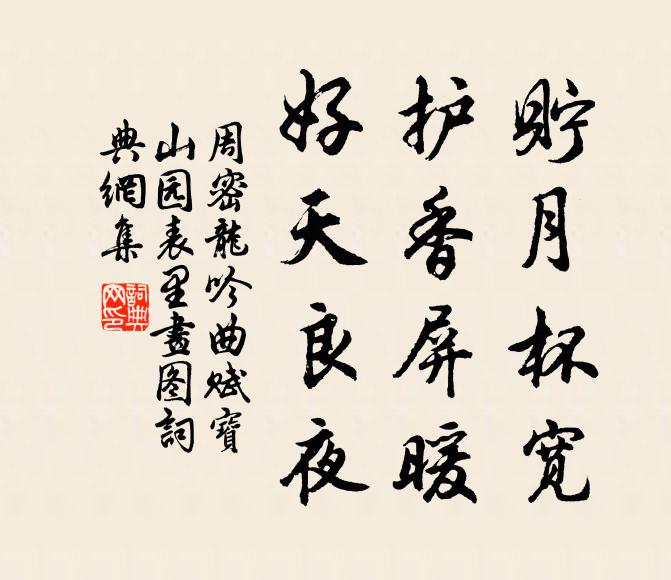 貯月杯宽
护香屏暖
好天良夜
周密龍吟曲赋寶
山园表里畫图詞
典網集
詞典
网印